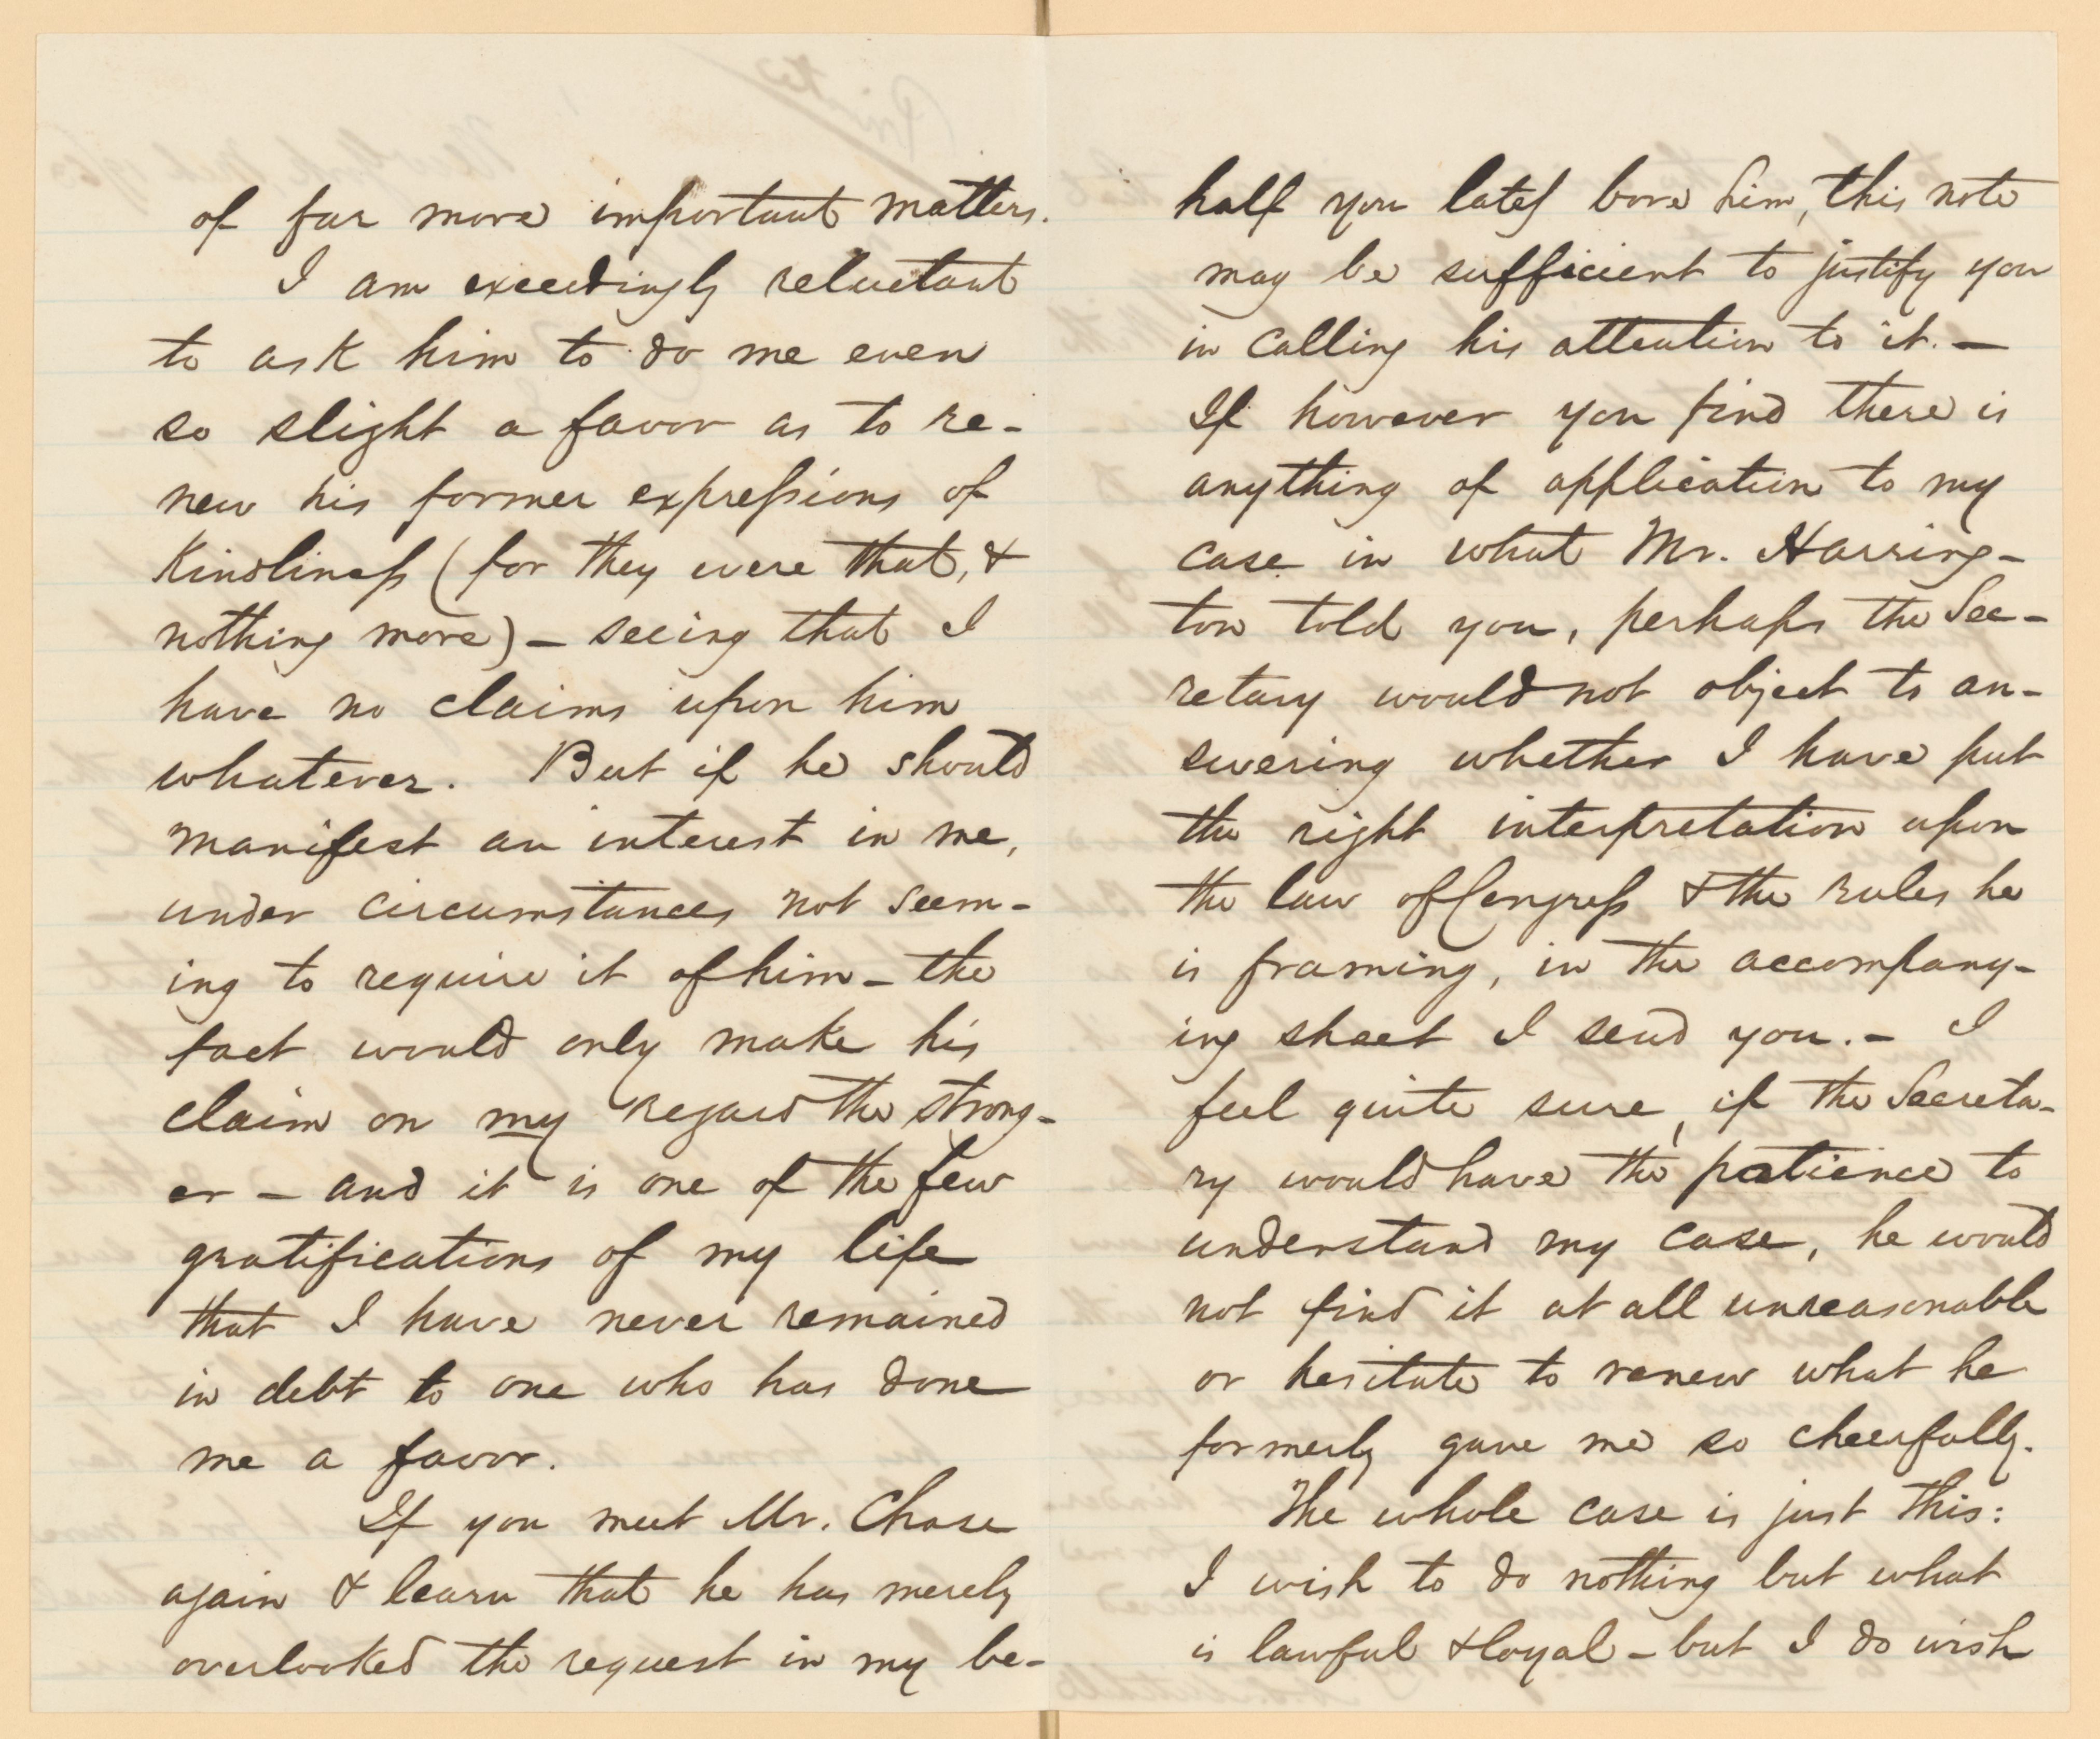 of far more important matters.
I am exceedingly reluctant
to ask him to do me even
so slight a favor as to re-
new his former expressions of
kindliness (for they were that, &
nothing more) - seeing that I
have no claims upon him
whatever. But if he should
manifest an interest in me,
under circumstances not seem-
ing to require it of him - the
fact would only make his
claim on my regard the strong-
er - and it is one of the few
gratifications of my life
that I have never remained
in debt to one who has done
me a favor.
If you meet Mr. Chase
again & learn that he has merely
overlooked the request in my be-
half you lately bore him, this note
may be sufficient to justify you
in calling his attention to it. -
If however you find there is
anything of application to my
case in what Mr. Harring-
ton told you, perhaps the Sec-
retary would not object to an-
swering whether I have put
the right interpretation upon
the law of Congress & the rules he
is framing, in the accompany-
ing sheet I send you. - I
feel quite sure, if the Secreta-
ry would have the patience to
understand my case, he would
not find it at all unreasonable
or hesitate to renew what he
formerly gave me so cheerfully.
The whole case is just this:
I wish to do nothing but what
is lawful & loyal - but I do wish